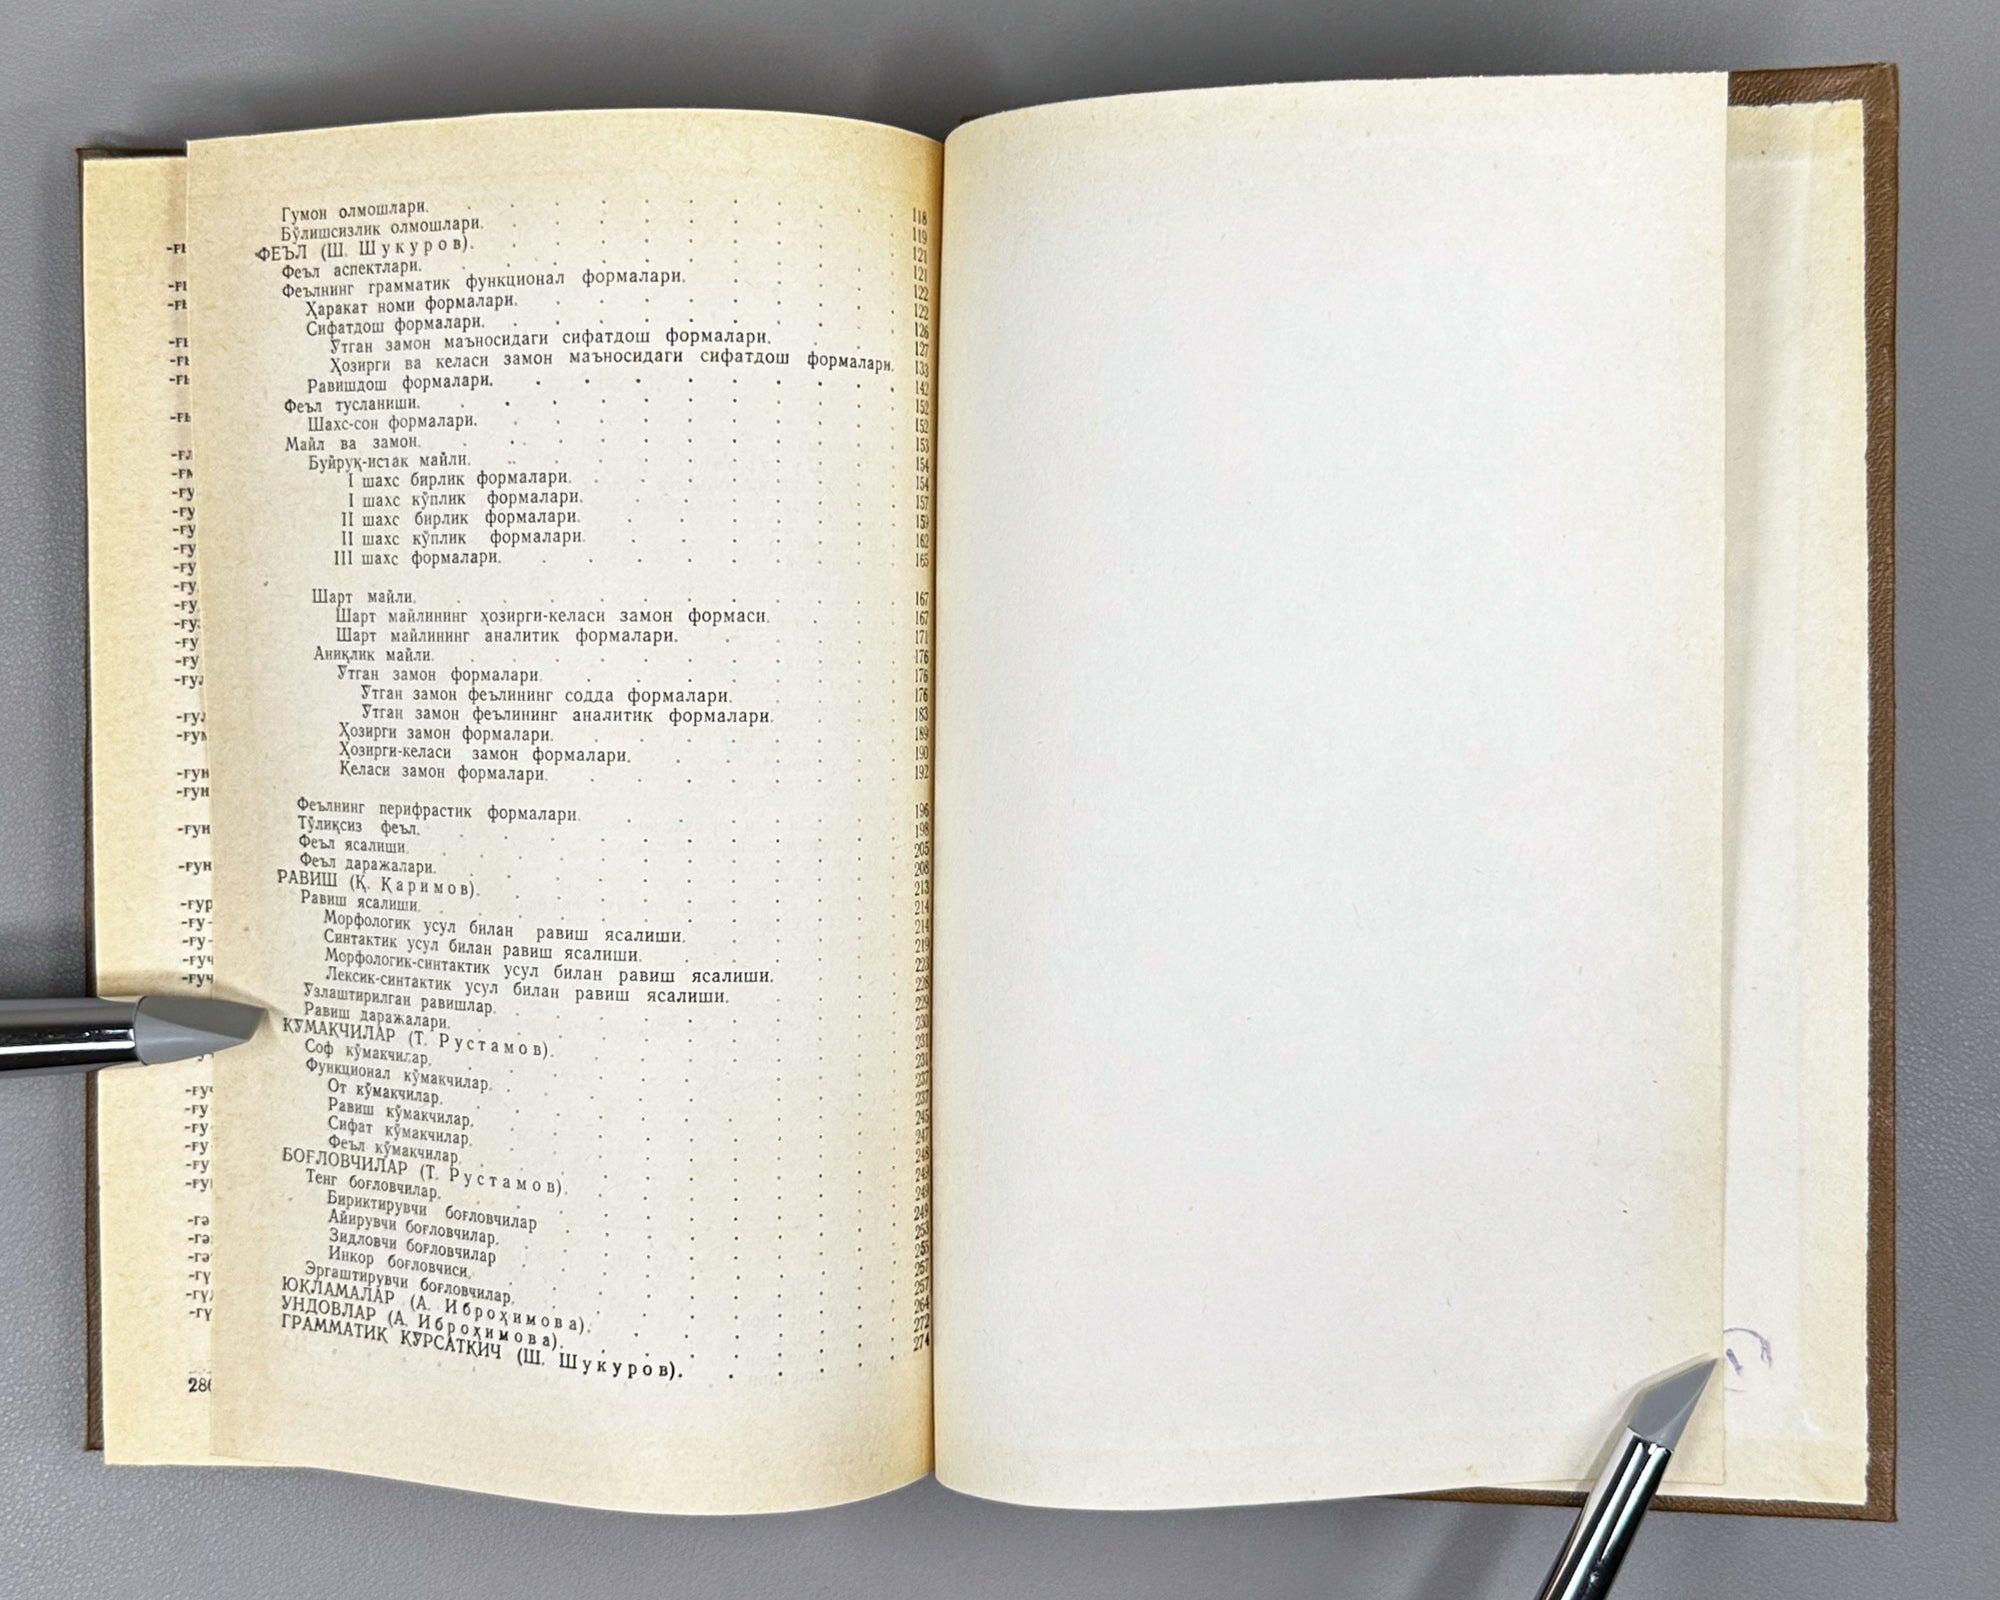 Гумон олмошлари. 118
Бўлишсизлик олмошлари. 119
ФЕЪЛ (Ш. Шукуров). 121
Феъл аспектлари. 121
Феълнинг грамматик функционал формалари. 122
Ҳаракат номи формалари. 122
Сифатдош формалари. 126
Ўтган замон маъносидаги сифатдош формалари. 127
Ҳозирги ва келаси замон маъносидаги сифатдош формалари. 133
Равишдош формалари. 142
Феъл тусланиши. 152
Шахс-сон формалари. 152
Майл ва замон. 153
Буйруқ-истак майли. 154
I шахс бирлик формалари. 154
I шахс кўплик формалари. 157
II шахс бирлик формалари. 159
II шахс кўплик формалари. 162
III шахс формалари. 165
Шарт майли. 167
Шарт майлининг ҳозирги-келаси замон формаси. 167
Шарт майлининг аналитик формалари. 171
Аниқлик майли. 176
Ўтган замон формалари. 176
Ўтган замон феълининг содда формалари. 176
Ўтган замон феълининг аналитик формалари. 183
Ҳозирги замон формалари. 189
Ҳозирги-келаси замон формалари. 190
Келаси замон формалари. 192
Феълнинг перифрастик формалари. 196
Тўлиқсиз феъл. 198
Феъл ясалиши. 205
Феъл даражалари. 208
РАВИШ (Қ. Каримов). 213
Равиш ясалиши. 214
Морфологик усул билан равиш ясалиши. 214
Синтактик усул билан равиш ясалиши. 219
Морфологик-синтактик усул билан равиш ясалиши. 223
Лексик-синтактик усул билан равиш ясалиши. 228
Ўзлаштирилган равишлар. 229
Равиш даражалари. 230
КЎМАКЧИЛАР (Т. Рустамов). 231
Соф кўмакчилар. 231
Функционал кўмакчилар. 237
От кўмакчилар. 237
Равиш кўмакчилар. 245
Сифат кўмакчилар. 247
Феъл кўмакчилар. 248
БОҒЛОВЧИЛАР (Т. Рустамов). 249
Тенг боғловчилар. 249
Бириктирувчи боғловчилар 249
Айирувчи боғловчилар. 253
Зидловчи боғловчилар 255
Инкор боғловчиси. 257
Эргаштирувчи боғловчилар. 257
ЮКЛАМАЛАР (А. Иброҳимова). 264
УНДОВЛАР (А. Иброҳимова). 272
ГРАММАТИК КЎРСАТКИЧ (Ш. Шукуров). 274